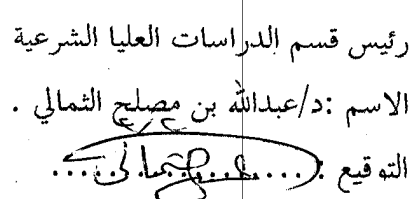 رئيس قسم الدراسات العليا الشرعية
الاسم :د/عبدالله بن مصلح الثمالي .
التوقيع :